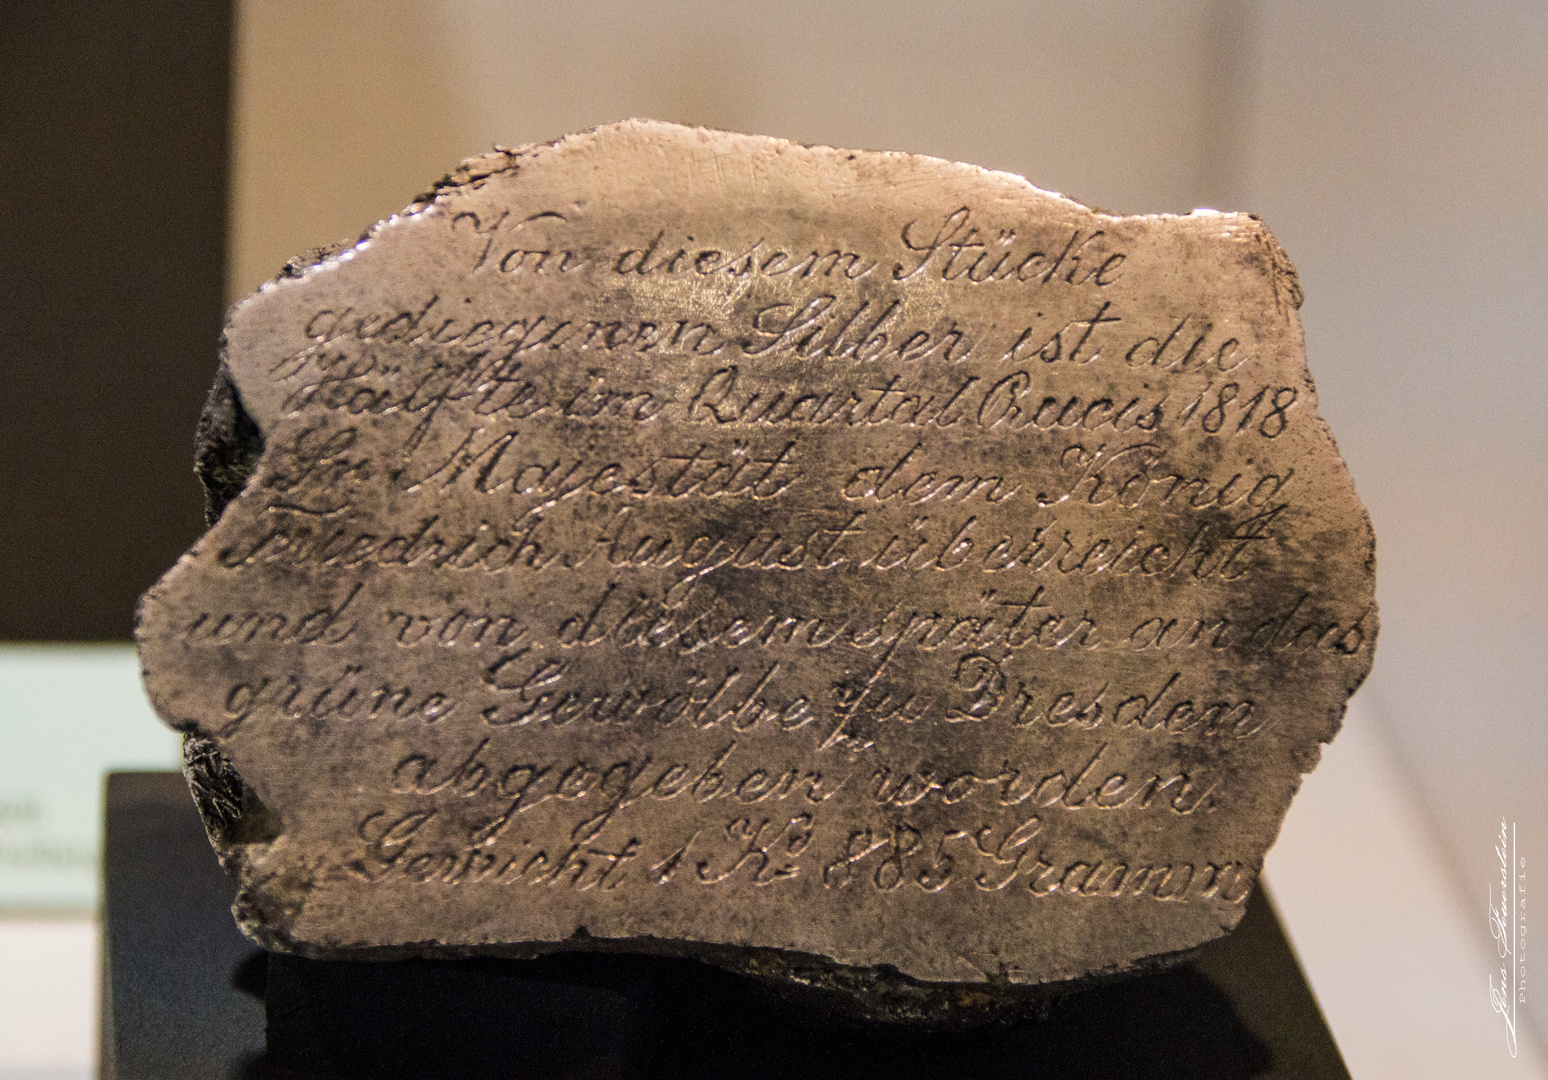 Von diesem Stücke
gediegenen Silber ist die
Hälfte im Quartal Crucis 1818
Sr Majestät dem König
Friedrich August überreicht
und von diesem später an das
grüne Gewölbe zu Dresden
abgegeben worden.
Gewicht 1 Ko 885 Gramm
Photografie